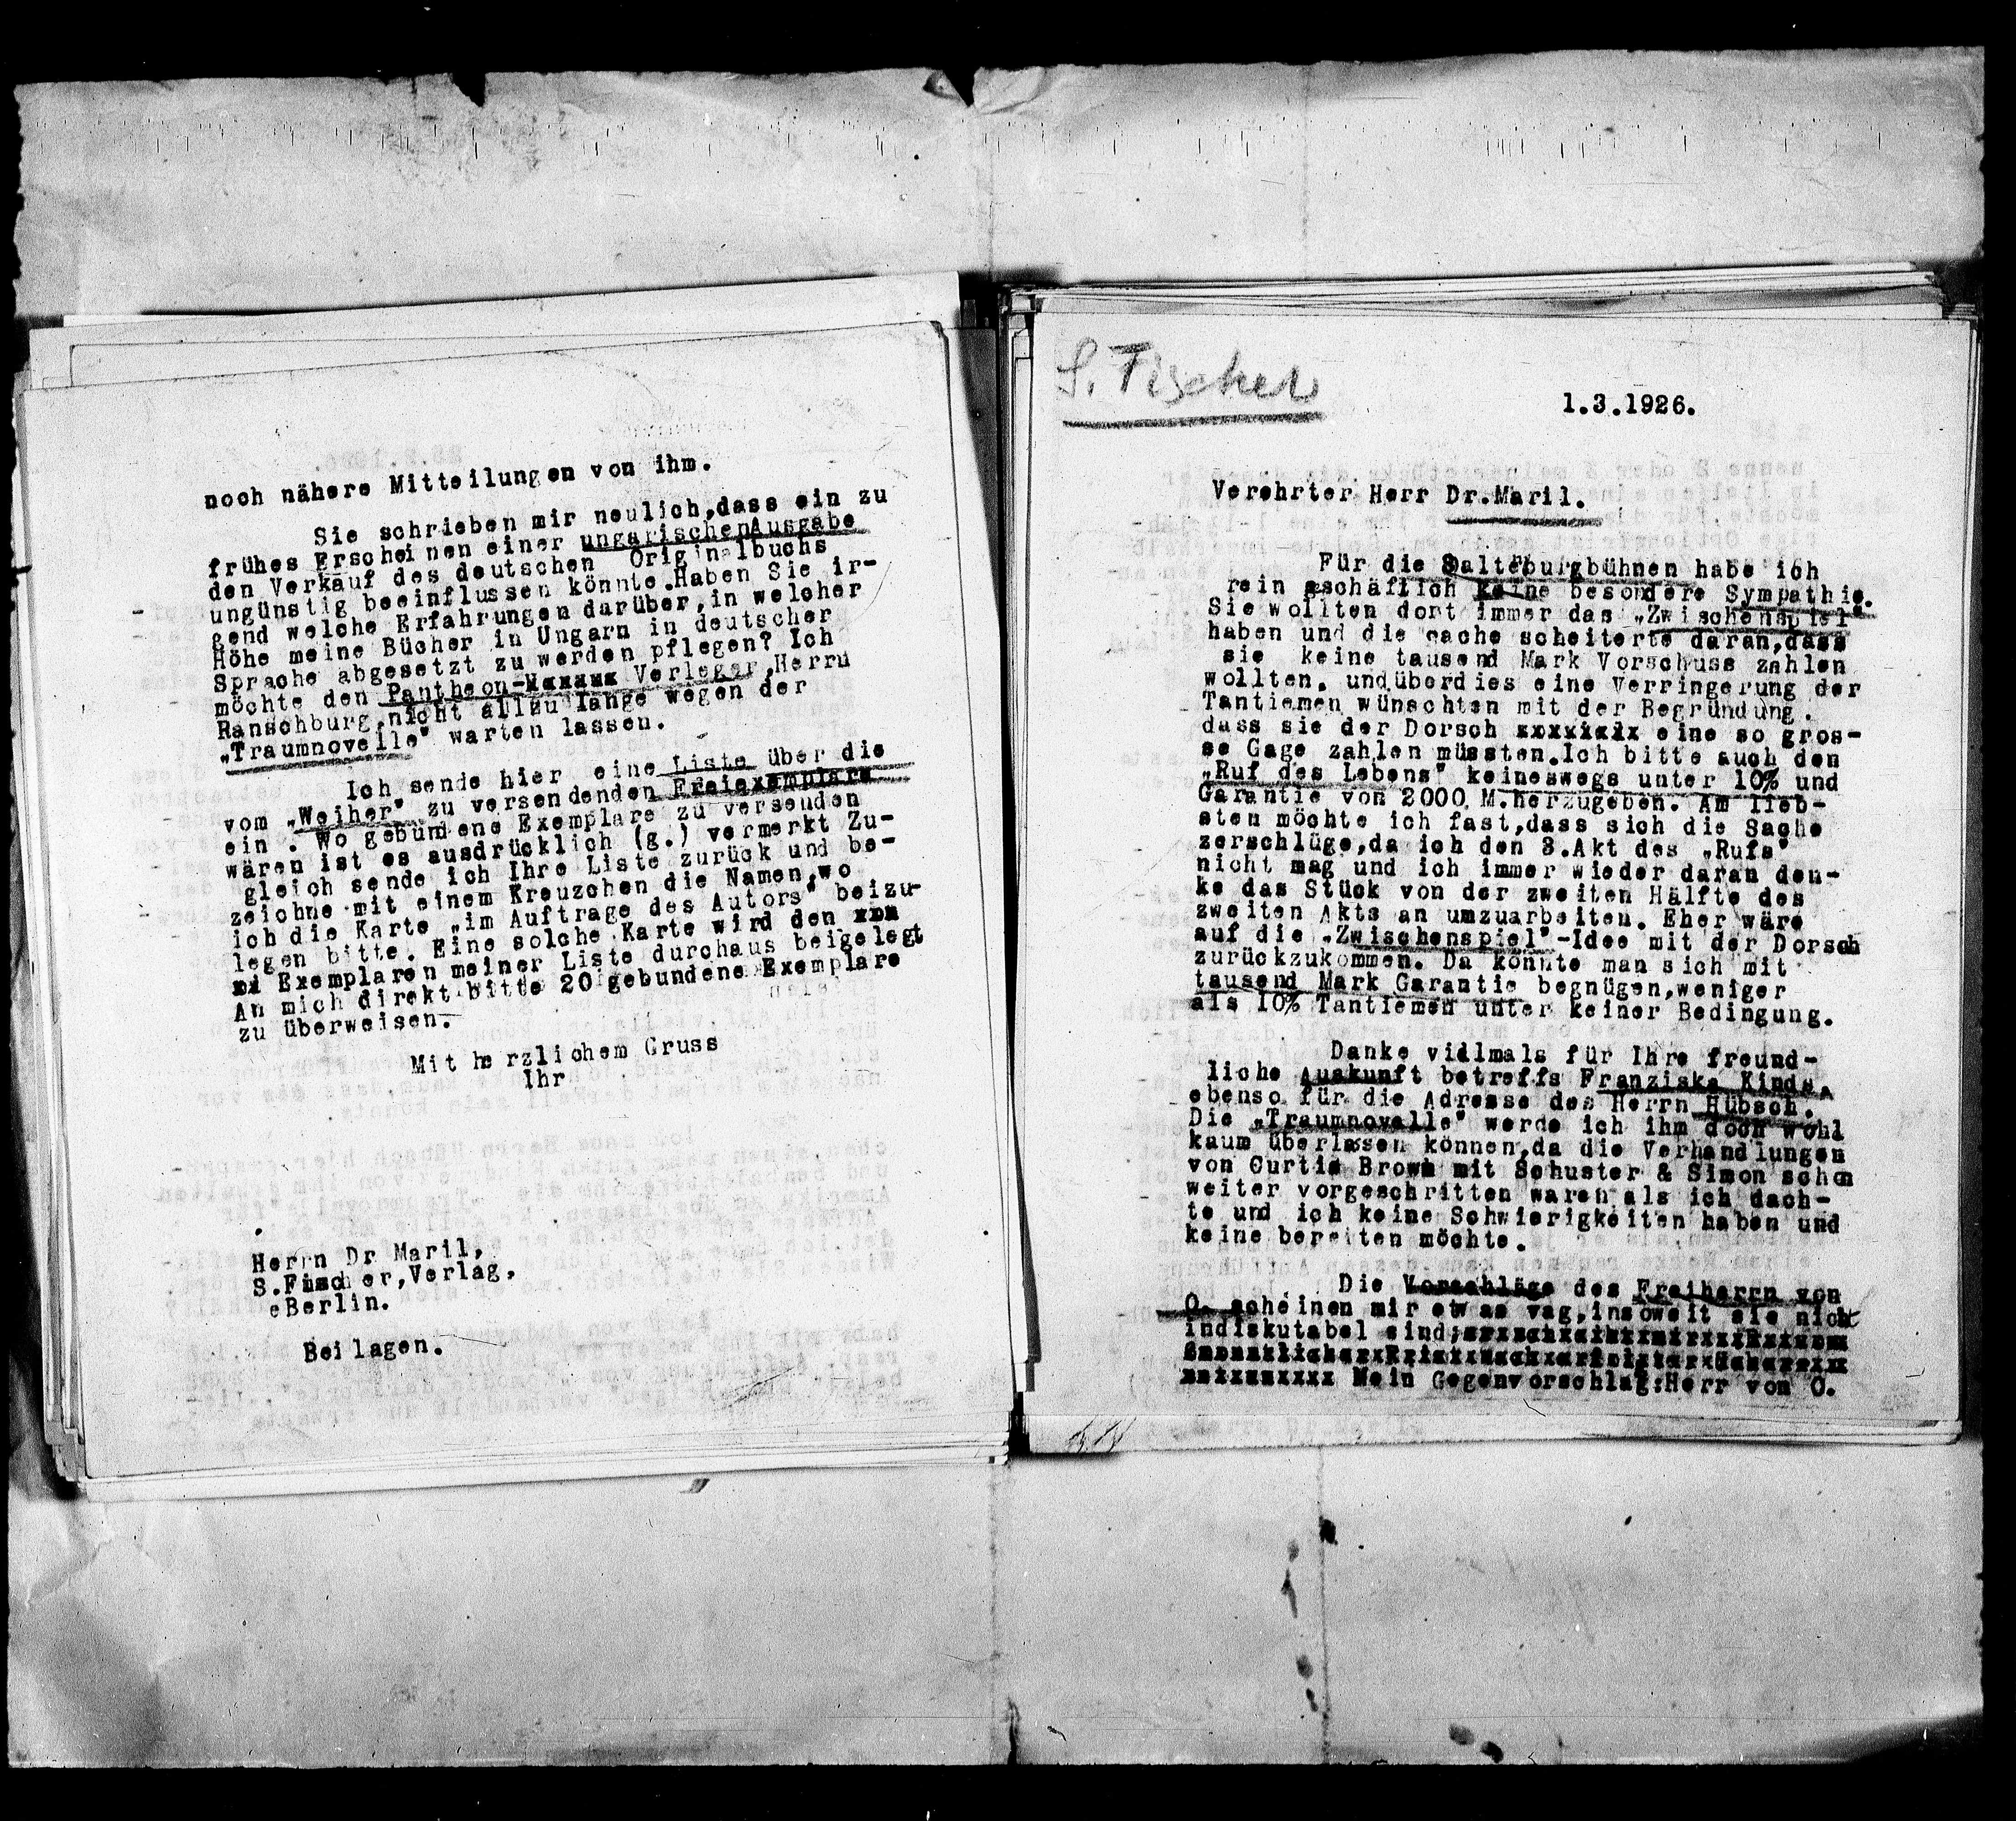 noch nähere Mitteilungen von ihm.
Sie schrieben mir neulich,dass ein zu
frühes Erscheinen einer ungarischen Ausgabe
den Verkauf des deutschen Originalbuchs
ungünstig beeinflussen könnte.Haben Sie ir-
gend welche Erfahrungen darüber,in welcher
Höhe meine Bücher in Ungarn in deutscher
Sprache abgesetzt zu werden pflegen? Ich
möchte den Pantheon- Verleger,Herrn
Ranschburg,nicht allzu lange wegen der
„Traumnovelle" warten lassen.
Ich sende hier eine Liste über die
vom „Weiher" zu versendenden Freiexemplare
ein . Wo gebundene Exemplare zu versenden
wären ist es ausdrücklich (g.) vermerkt Zu-
gleich sende ich Ihre Liste zurück und be-
zeichne mit einem Kreuzchen die Namen,wo
ich die Karte „im Auftrage des Autors" beizu-
legen bitte. Eine solche Karte wird den xxx
xx Exemplaren meiner Liste durchaus beigelegt
An mich direkt bitte 20 gebundene Exemplare
zu überweisen.
Mit herzlichem Gruss
Ihr
Herrn Dr Maril,
S.Fischer,Verlag,
eBerlin.
Beilagen.
S. Fischer
1.3.1926.
Verehrter Herr Dr.Maril.
Für die Saltenburgbühnen habe ich
rein gschäflich keine besondere Sympathie.
Sie wollten dort immer das „Zwischenspiel"
haben und die Sache scheiterte daran,dass
sie keine tausend Mark Vorschuss zahlen
wollten. und überdies eine Verringerung der
Tantiemen wünschten mit der Begründung.
dass sie der Dorsch xxxxxxxx eine so gros-
se Gage zahlen müssten.Ich bitte auch den
„Ruf des Lebens" keineswegs unter 10% und
Garantie von 2000 M.herzugeben. Am lieb-
sten möchte ich fast,dass sich die Sache
zerschlüge,da ich den 3.Akt des „Rufs"
nicht mag und ich immer wieder daran den-
ke das Stück von der zweiten Hälfte des
zweiten Akts an umzuarbeiten. Eher wäre
auf die „Zwischenspiel"-Idee mit der Dorsch
zurückzukommen. Da könnte man sich mit
tausend Mark Garantie begnügen,weniger
als 10% Tantiemen unter keiner Bedingung.
Danke vielmals für Ihre freund-
liche Auskunft betreffs Franziska Kinds,
ebenso für die Adresse des Herrn Hübsch.
Die „Traumnovelle" werde ich ihm doch wohl
kaum überlassen können,da die Verhandlungen
von Curtis Brown mit Schuster & Simon schon
weiter vorgeschritten waren als ich dach-
te und ich keine Schwierigkeiten haben und
keine bereiten möchte.
Die Vorschläge des Freiherrn von
O. scheinen mir etwas vag,insoweit sie nicht
indiskutabel sind;
Mein Gegenvorschlag:Herr von O.